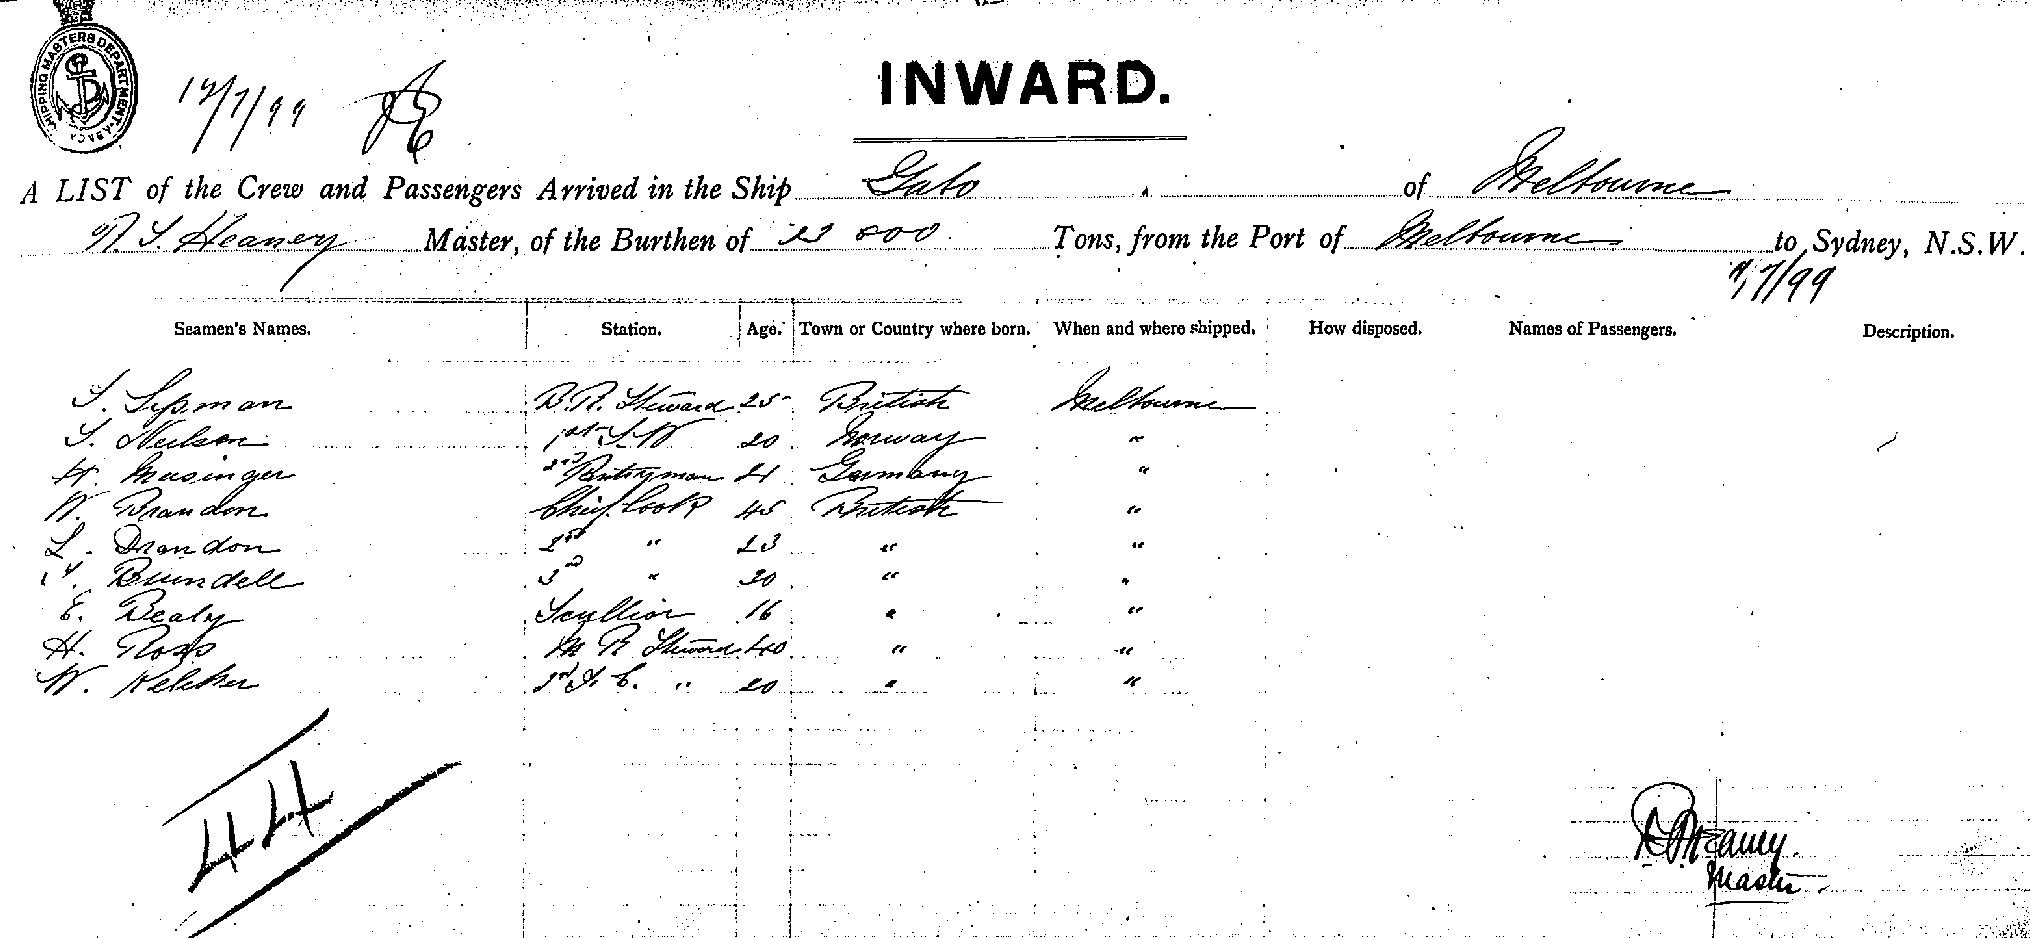 SHIPPING MASTERS DEPARTMENT
12/7/99
INWARD.
A LIST of the Crew and Passengers Arrived in the Ship Gabo of Melbourne
Heaney Master, of the Burthen of Tons, from the Port of Melbourne to Sydney, N.S.W.
7/99
Seamen's Names. Station. Age. Town or Country where born. When and where shipped. How disposed. Names of Passengers. Description.
S. Lipman B.R. Steward 25 British Melbourne
S. Neilson 1st S.W 20 Norway "
H. Musinger 2nd Pantryman 21 Germany "
W. Brandon Chief Cook 45 British "
L. Brandon 2nd " 23 " "
Blundell 3rd " 20 " "
E. Bealy Scullion 16 " "
H. Ross M R Steward 40 " "
W. Kelcher " 20 " "
44
Heaney.
Master